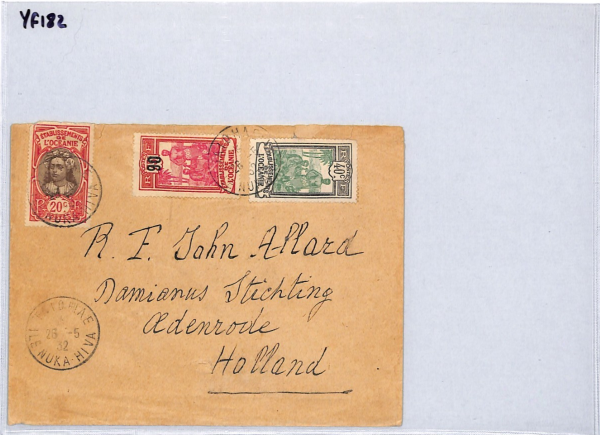 YF182
ETABLISSEMENTS
DE
L'OCEANIE
20c
90
ETABLISSEMENTS
DE
L'OCEANIE
40c
R. F. John Allard
Damianus Stichting
Ædenrode
Holland
26 -5
32
ILE NUKA-HIVA